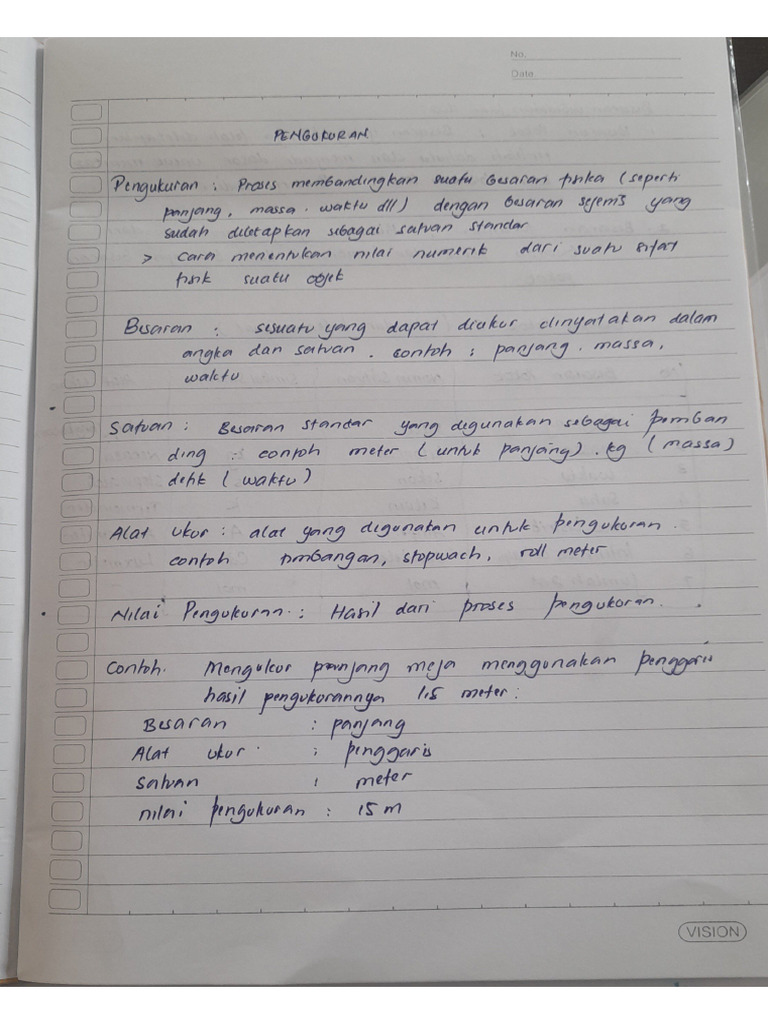 No.
Date
PENGUKURAN
Pengukuran : Proses membandingkan suatu besaran fisika (seperti
panjang, massa. waktu dll) dengan besaran sejenis yang
sudah ditetapkan sebagai satuan standar
> cara menentukan nilai numerik dari suatu sifat
fisik suatu objek
Besaran : sesuatu yang dapat diukur dinyatakan dalam
angka dan satuan. contoh : panjang. massa,
waktu
Satuan : Besaran standar yang digunakan sebagai pemban
ding : contoh meter (untuk panjang). kg (massa)
detik (waktu)
Alat ukur : alat yang digunakan untuk pengukuran.
contoh timbangan, stopwach, roll meter
Nilai Pengukuran : Hasil dari proses pengukuran.
Contoh. Mengukur panjang meja menggunakan penggaris
hasil pengukurannya 1.5 meter :
Besaran : panjang
Alat ukur : penggaris
Satuan : meter
nilai pengukuran : 15 m
VISION